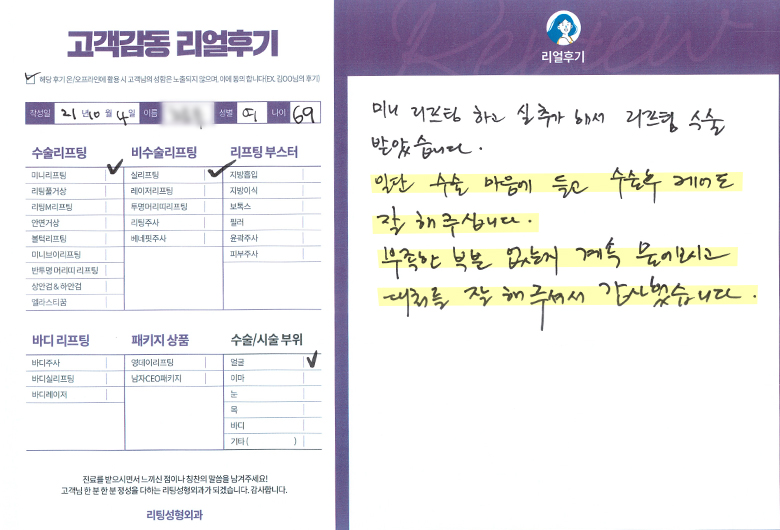 고객감동 리얼후기
해당 후기 온/오프라인에 활용 시 고객님의 성함은 노출되지 않으며, 이에 동의 합니다(EX. 김OO님의 후기)
작성일 21 년 10 월 4 일 이름 성별 여 나이 69
수술리프팅
미니리프팅
리팅풀거상
리팅M리프팅
안면거상
볼턱리프팅
미니브이리프팅
반투명 머리띠 리프팅
상안검 & 하안검
엘라스티꿈
비수술리프팅
실리프팅
레이저리프팅
투명머리띠리프팅
리팅주사
베네핏주사
리프팅 부스터
지방흡입
지방이식
보톡스
필러
윤곽주사
피부주사
바디 리프팅
바디주사
바디실리프팅
바디레이저
패키지 상품
영데이리프팅
남자CEO패키지
수술/시술 부위
얼굴
이마
눈
목
바디
기타 ( )
진료를 받으시면서 느끼신 점이나 칭찬의 말씀을 남겨주세요!
고객님 한 분 한 분 정성을 다하는 리팅성형외과가 되겠습니다. 감사합니다.
리팅성형외과
Review
리얼후기
미니 리프팅 하고 실추가 해서 리프팅 수술
받았습니다.
일단 수술 마음에 들고 수술후 케어도
잘 해주십니다.
부족한 부분 없는지 계속 물어보시고
대처를 잘 해주셔서 감사했습니다.